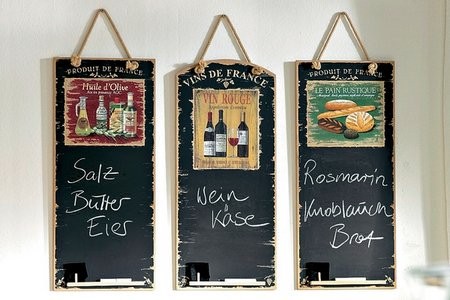 PRODUIT DE FRANCE
Huile d'Olive
Salz
Butter
Eier
VINS DE FRANCE
VIN ROUGE
Wein
Käse
PRODUIT DE FRANCE
LE PAIN RUSTIQUE
Rosmarin
Knoblauch
Brot